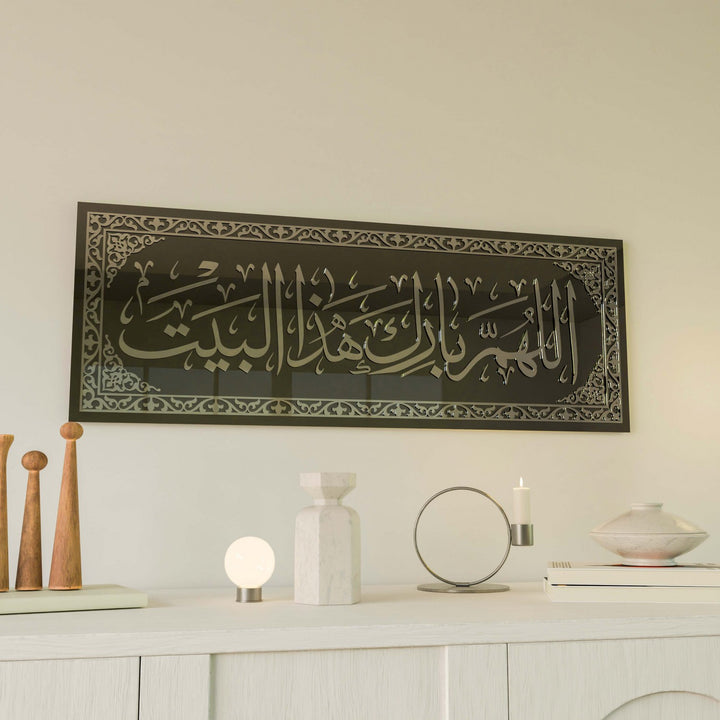 اللهُمَّ بارِك هٰذا البَيْتَ